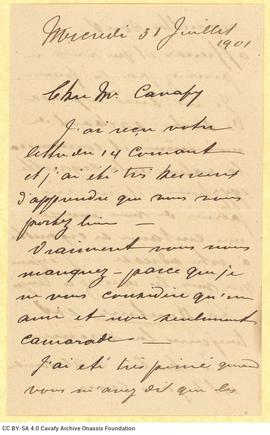 Mercredi 31 Juillet
1901
Cher Mr. Cavafy
J'ai reçu votre
lettre du 14 Courant
et j'ai été très heureux
d'apprendre que vous vous
portez bien —
Vraiment vous nous
manquez — parce que je
ne vous considère qu'un
ami et non seulement
camarade —
J'ai été très peiné quand
vous m'avez dit que les
CC BY-SA 4.0 Cavafy Archive Onassis Foundation